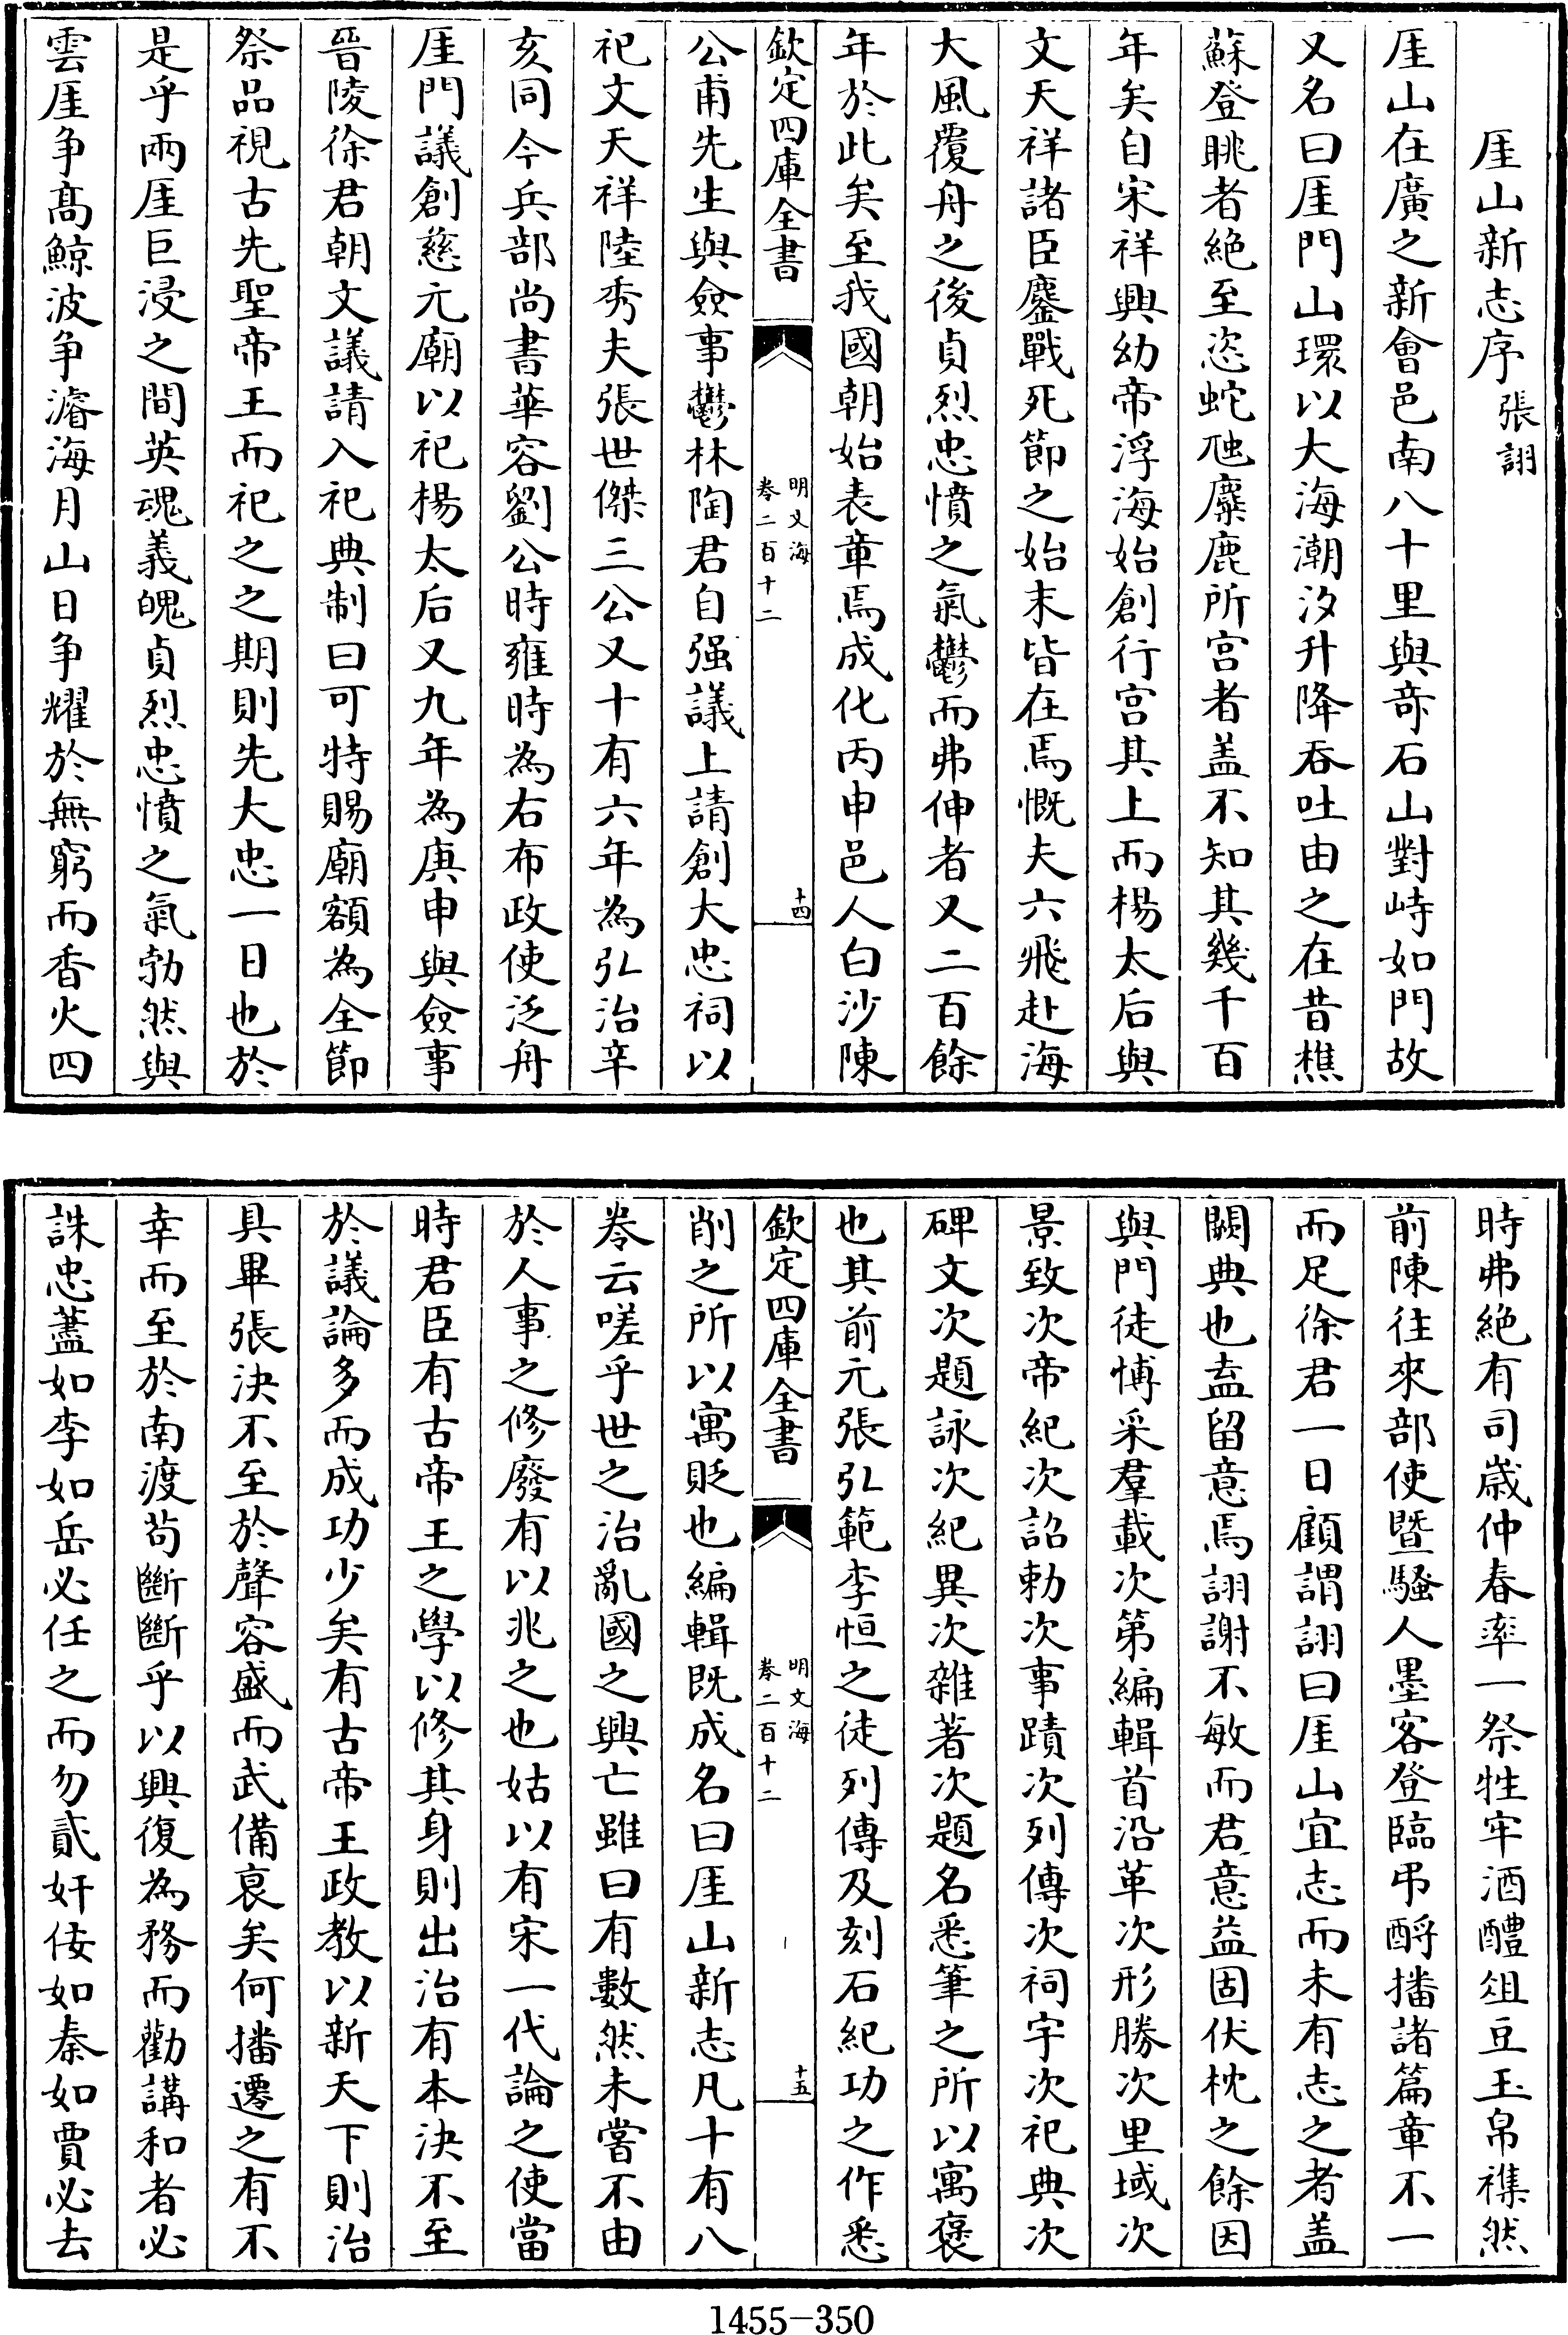 厓山新志序 張詡
厓山在廣之新會邑南八十里與竒石山對峙如門故
又名曰厓門山環以大海潮汐升降吞吐由之在昔樵
蘇登眺者絶至恣蛇虺麋鹿所宫者盖不知其幾千百
年矣自宋祥興幼帝浮海始創行宫其上而楊太后與
文天祥諸臣鏖戰死節之始末皆在焉慨夫六飛赴海
大風覆舟之後貞烈忠憤之氣鬱而弗伸者又二百餘
年於此矣至我國朝始表章焉成化丙申邑人白沙陳
欽定四庫全書
明文海
卷二百十二
十四
公甫先生與僉事鬱林陶君自强議上請創大忠祠以
祀文天祥陸秀夫張世傑三公又十有六年為弘治辛
亥同今兵部尚書華容劉公時雍時為右布政使泛舟
厓門議創慈元廟以祀楊太后又九年為庚申與僉事
晉陵徐君朝文議請入祀典制曰可特賜廟額為全節
祭品視古先聖帝王而祀之之期則先大忠一日也於
是乎兩厓巨浸之間英魂義魄貞烈忠憤之氣勃然與
雲厓争髙鯨波争濬海月山日争耀於無窮而香火四
時弗絶有司歳仲春率一祭牲牢酒醴俎豆玉帛襍然
前陳往來部使曁騷人墨客登臨弔酹播諸篇章不一
而足徐君一日顧謂詡曰厓山宜志而未有志之者盖
闕典也盍留意焉詡謝不敏而君意益固伏枕之餘因
與門徒博采羣載次第編輯首沿革次形勝次里域次
景致次帝紀次詔勅次事蹟次列傳次祠宇次祀典次
碑文次題詠次紀異次雜著次題名悉筆之所以寓褒
也其前元張弘範李恒之徒列傳及刻石紀功之作悉
欽定四庫全書
明文海
卷二百十二
十五
削之所以寓貶也編輯既成名曰厓山新志凡十有八
卷云嗟乎世之治亂國之興亡雖曰有數然未嘗不由
於人事之修廢有以兆之也姑以有宋一代論之使當
時君臣有古帝王之學以修其身則出治有本決不至
於議論多而成功少矣有古帝王政教以新天下則治
具畢張決不至於聲容盛而武備衰矣何播遷之有不
幸而至於南渡苟斷斷乎以興復為務而勸講和者必
誅忠藎如李如岳必任之而勿貳奸佞如秦如賈必去
1455-350